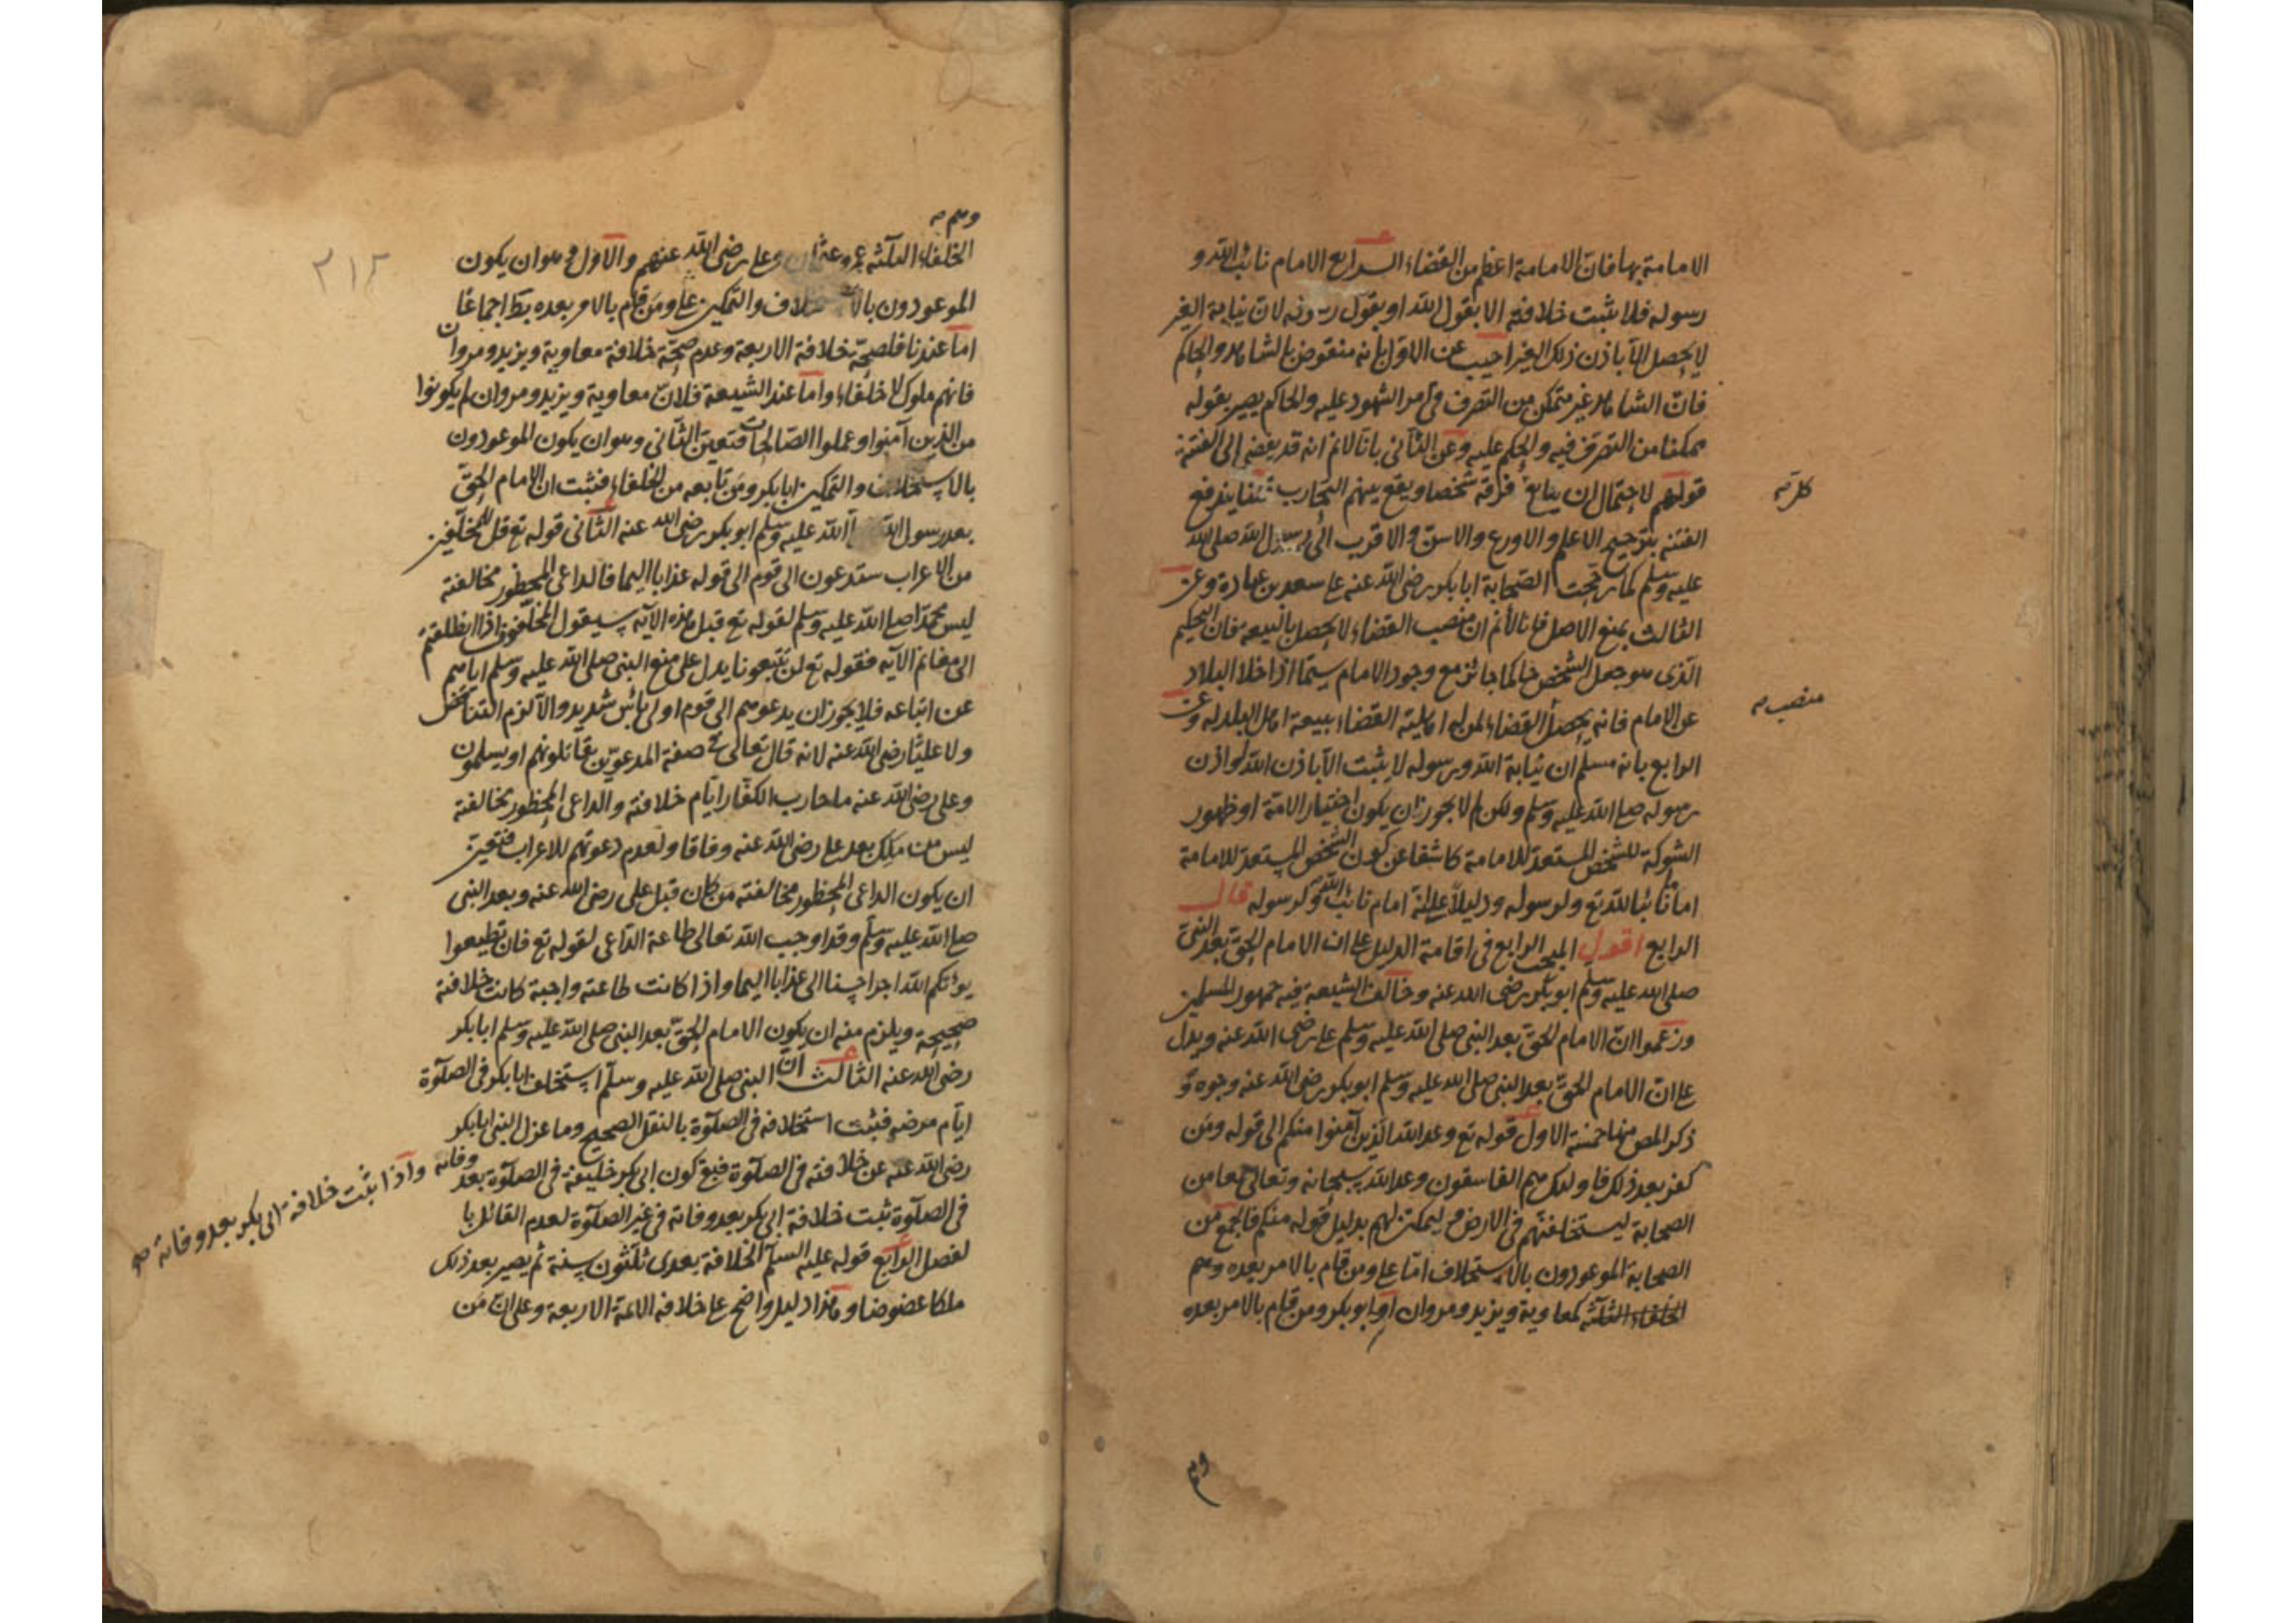 الامامة بها فان الامامة اعظم من القضاء الرابع الامام نائب الله و
رسوله فلا يثبت خلافته الا بقول الله او بقول رسوله لان نيابة الغير
لا يحصل الا باذن ذلك الغير اجيب عن الاول بانه منقوض بالشاهد والحاكم
فان الشاهد غير متمكن من التصرف في امر الشهود عليه والحاكم يصير بقوله
ممكنا من التصرف فيه والحكم عليه وعن الثاني بانا لانم انه قد يفضي الى الفتنة
قولهم لاحتمال ان يبايع فرقة شخصا ويقع بينهم التحارب قلنا يندفع
كل
الفتنة بترجيح الاعلم والاورع والاسن والاقرب الى رسول الله صلى الله
عليه وسلم كما رجحت الصحابة ابا بكر رضي الله عنه على سعد بن عبادة وعن
الثالث بمنع الاصل فانا لانم ان منصب القضاء لا يحصل بالبيعة فان التحكيم
الذي هو جعل الشخص حاكما جائز مع وجود الامام سيما اذا خلا البلاد
عن الامام فانه يحصل القضاء لمن له اهلية القضاء ببيعة اهل البلد له وعن
منصب
الرابع بانه مسلم ان نيابة الله ورسوله لا يثبت الا باذن الله او اذن
رسوله صلى الله عليه وسلم ولكن لم لا يجوز ان يكون اختيار الامة او ظهور
الشوكة للشخص المستعد للامامة كاشفا عن كون الشخص المستعد للامامة
اماما نائبا لله تع ولرسوله ودليلا على انه امام نائب لله ولرسوله قال
الرابع اقول المبحث الرابع في اقامة الدليل على ان الامام الحق بعد النبي
صلى الله عليه وسلم ابو بكر رضي الله عنه وخالف الشيعة فيه جمهور المسلمين
وزعموا ان الامام الحق بعد النبي صلى الله عليه وسلم على رضي الله عنه ويدل
على ان الامام الحق بعد النبي صلى الله عليه وسلم ابو بكر رضي الله عنه وجوه و
ذكر المص منها خمسة الاول قوله تع وعد الله الذين آمنوا منكم الى قوله ومن
كفر بعد ذلك فاولئك هم الفاسقون وعد الله سبحانه وتعالى جمعا من
الصحابة ليستخلفنهم في الارض و ليمكنن لهم بدليل قوله منكم فالجمع من
الصحابة الموعودون بالاستخلاف اما على ومن قام بالامر بعده وهم
الخلفاء الثلثة كمعاوية ويزيد ومروان او ابو بكر ومن قام بالامر بعده
وهم
وهم
٢١٢
الخلفاء الثلثة عمر وعثمان وعلى رضي الله عنهم والاول وهو ان يكون
الموعودون بالاستخلاف والتمكين على ومن قام بالامر بعده بط اجماعا
اما عندنا فلصحة خلافة الاربعة وعدم صحة خلافة معاوية ويزيد ومروان
فانهم ملوك لا خلفاء واما عند الشيعة فلان معاوية ويزيد ومروان لم يكونوا
من الذين آمنوا وعملوا الصالحات فتعين الثاني وهو ان يكون الموعودون
بالاستخلاف والتمكين ابا بكر ومن تابعه من الخلفاء فثبت ان الامام الحق
بعد رسول الله صلى الله عليه وسلم ابو بكر رضي الله عنه الثاني قوله تع قل للمخلفين
من الاعراب ستدعون الى قوم الى قوله عذابا اليما فالداعي المحظور مخالفته
ليس محمدا صلى الله عليه وسلم لقوله تع قبل هذه الآية سيقول المخلفون اذا انطلقتم
الى مغانم الآية فقوله تع لن تتبعونا يدل على منع النبي صلى الله عليه وسلم اياهم
عن اتباعه فلا يجوز ان يدعوهم الى قوم اولى بأس شديد والا لزم التناقض
ولا عليا رضي الله عنه لانه قال تعالى في صفة المدعوين تقاتلونهم او يسلمون
وعلى رضي الله عنه ما حارب الكفار ايام خلافته والداعي المحظور مخالفته
ليس من ملك بعد على رضي الله عنه وفاقا ولعدم دعوتهم للاعراب فتعين
ان يكون الداعي المحظور مخالفته من كان قبل على رضي الله عنه وبعد النبي
صلى الله عليه وسلم وقد اوجب الله تعالى طاعة الداعي لقوله تع فان تطيعوا
يؤتكم الله اجرا حسنا الى عذابا اليما واذا كانت طاعته واجبة كانت خلافته
صحيحة ويلزم منه ان يكون الامام الحق بعد النبي صلى الله عليه وسلم ابا بكر
رضي الله عنه الثالث ان النبي صلى الله عليه وسلم استخلف ابا بكر في الصلوة
ايام مرضه فثبت استخلافه في الصلوة بالنقل الصحيح وما عزل النبي ابا بكر
رضي الله عنه عن خلافته في الصلوة فبقي كون ابي بكر خليفة في الصلوة بعد وفاته
واذا ثبت خلافة ابي بكر بعد وفاته صح
في الصلوة ثبت خلافة ابي بكر بعد وفاته في غير الصلوة لعدم القائل با
لفصل الرابع قوله عليه السلم الخلافة بعدى ثلثون سنة ثم يصير بعد ذلك
ملكا عضوضا وهذا دليل واضح على خلافة الائمة الاربعة وعلى ان من